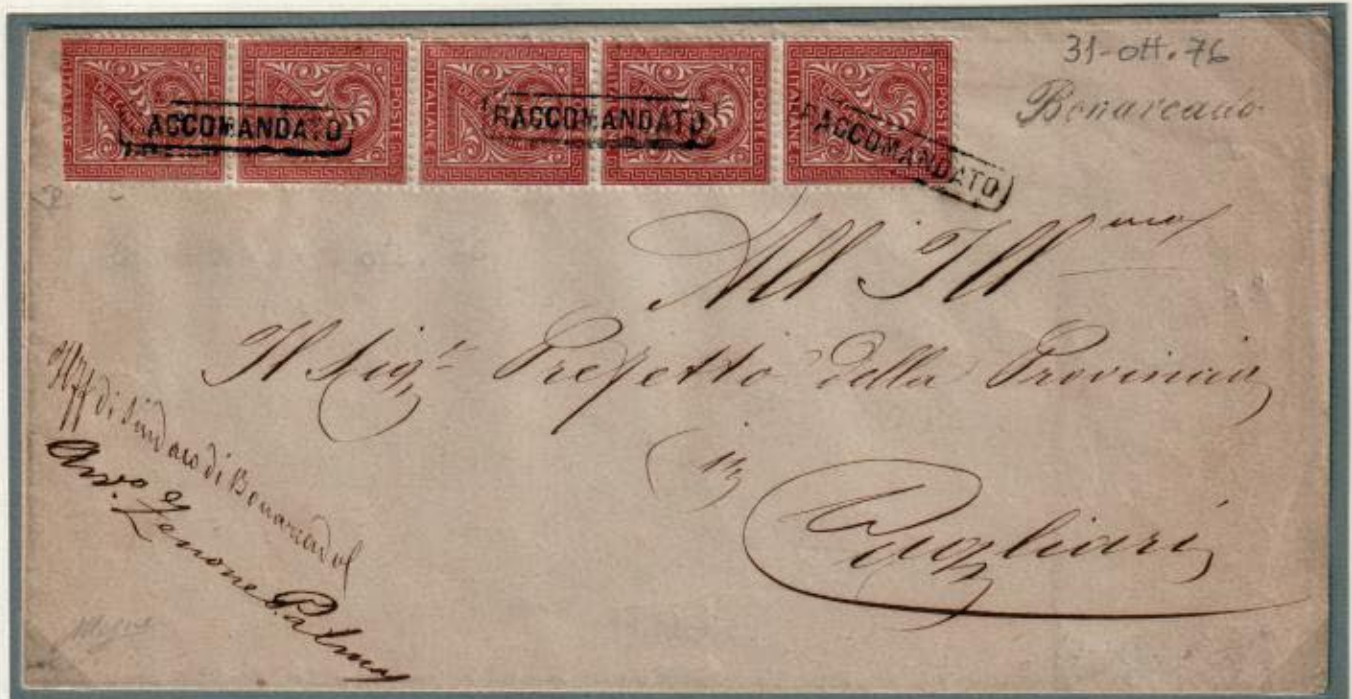 31-ott. 76
Bonarcado
RACCOMANDATO
RACCOMANDATO
RACCOMANDATO
POSTE ITALIANE
All Ill mo
Il Sigr Prefetto della Provincia
in
Cagliari
Il ff di Sindaco di Bonarcado
Avvo Zenone Palmas